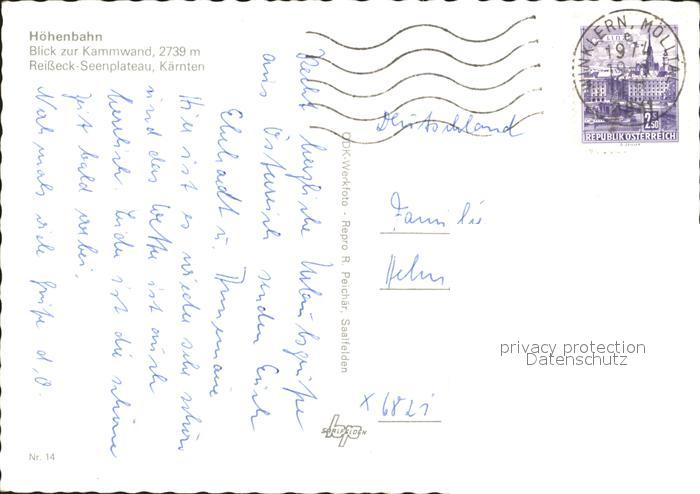 Höhenbahn
Blick zur Kammwand, 2739 m
Reißeck-Seenplateau, Kärnten
Recht herzliche Urlaubsgrüße
aus Österreich senden Euch
Ehrhardt u. Annemarie
Hier ist es wieder sehr schön
und das Wetter ist auch
herrlich. Leider ist die schöne
Zeit bald vorbei.
Nochmals viele Grüße d. O.
Nr. 14
DDK-Werkfoto - Repro R. Peichär, Saalfelden
SAALFELDEN
WINKLERN, MÖLLTAL
1974
LINZ
2.50
REPUBLIK ÖSTERREICH
Deutschland
Familie
Helm
X 6821
privacy protection
Datenschutz